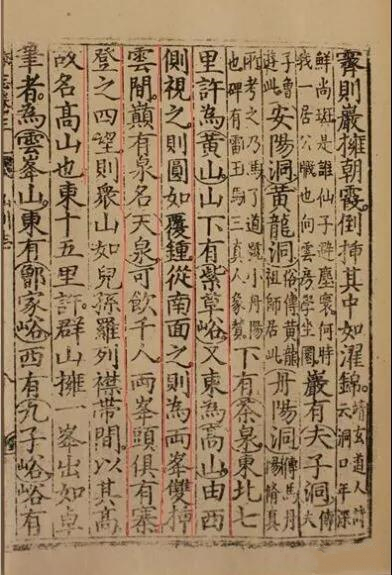 霽則巖擁朝霞倒挿其中如濯錦靖玄道人詩云洞口年深
鮮尚班是誰仙子避塵寰何時我一居公職也向雲房學坐圜巖有夫子洞傳
子魯遊此安陽洞黄龍洞俗傳黄龍祖師居此丹陽洞傳馬丹陽脩真
考之乃馬了道號小丹陽也碑有雷王馬三真人象贊下有茶泉東北七
里許為黄山山下有紫草峪又東為高山由西
側視之則圓如覆鍾從南面之則為兩峯雙挿
雲間巔有泉名天泉可飲千人兩峯頭俱有寨
登之四望則衆山如兒孫羅列襟帶間以其高
故名高山也東十五里許群山擁一峯出如卓
筆者為雲峯山東有家峪西有九子峪峪有